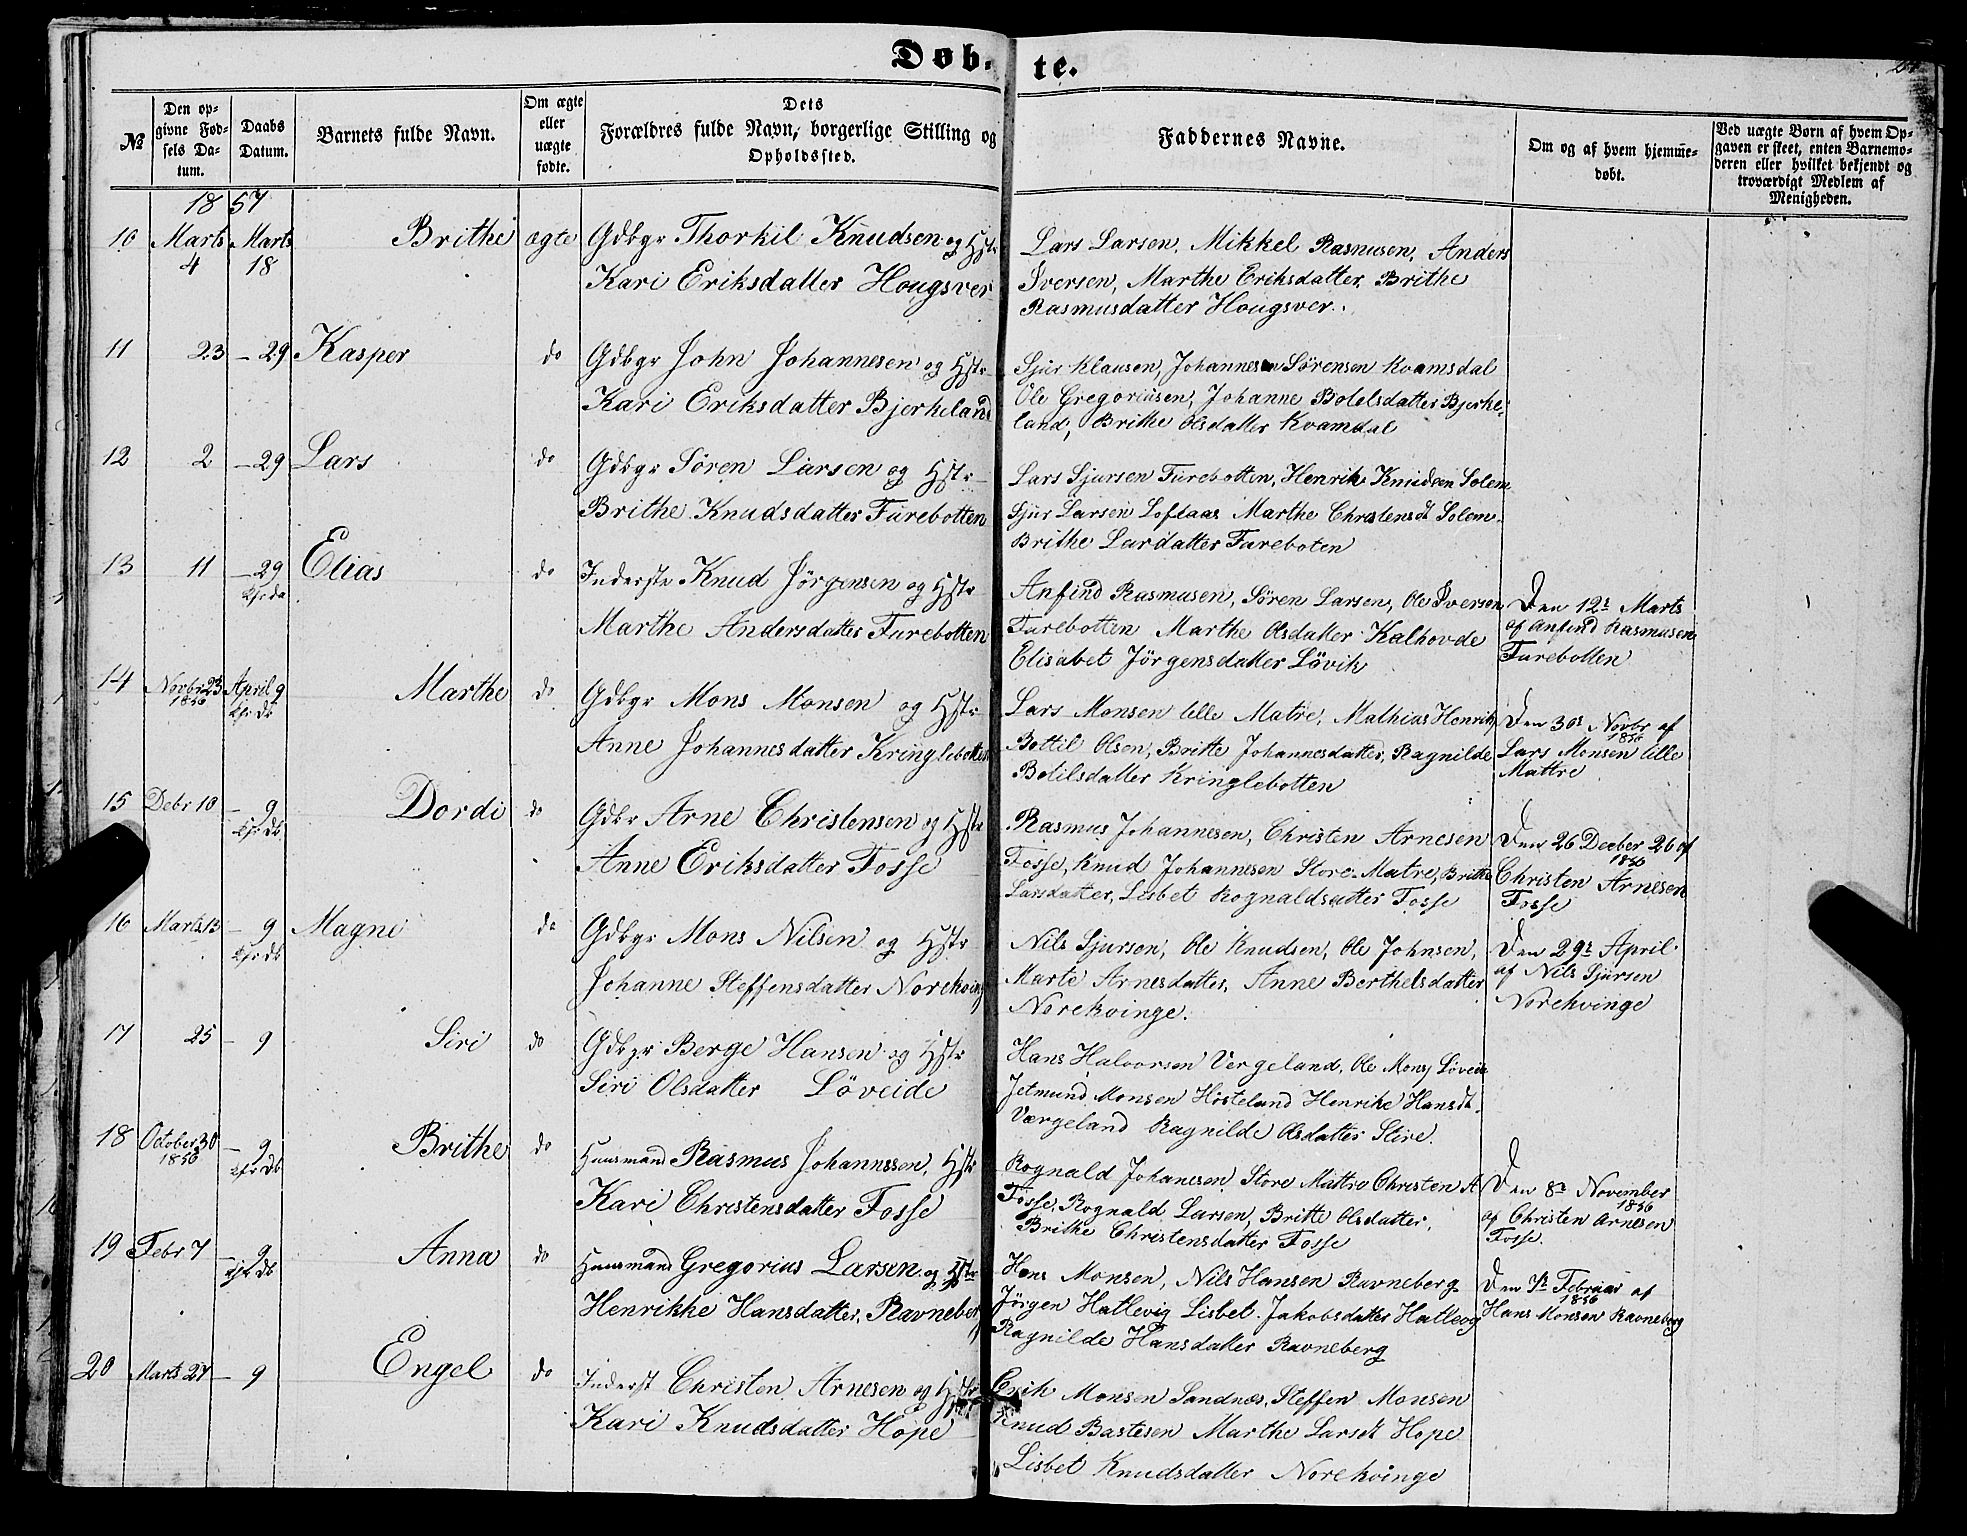 Døb- te.
№
Den opgivne Fødsels Datum.
Daabs Datum.
Barnets fulde Navn.
Om ægte eller uægte fødte.
Dets Forældres fulde Navn, borgerlige Stilling og Opholdssted.
Faddernes Navne.
Om og af hvem hjemmedøbt.
Ved uægte Børn af hvem Opgaven er skeet, enten Barnemoderen eller hvilket bekjendt og troværdigt Medlem af Menigheden.
1857
10 Marts 4 Marts 18 Brithe ægte Gdbgr Thorkil Knudsen og Hstr
Kari Eriksdatter Hougsver
Lars Larsen, Mikkel Rasmusen, Anders
Iversen, Marthe Eriksdatter, Brithe
Rasmusdatter Hougsver.
11 23 - 29 Kasper do Gdbgr John Johannesen og Hstr
Kari Eriksdatter Bjerkeland
Sjur Klausen, Johannesen Sörensen Kvamsdal
Ole Gregoriusen, Johanne Botelsdatter Bjerke-
land, Brithe Olsdatter Kvamdal
12 2 - 29 Lars do Gdbgr Sören Larsen og Hstr
Brithe Knudsdatter Furebotten
Lars Sjursen Furebotten, Henrik Knudsen Solem
Sjur Larsen Loftaas Marthe Christensdt Solem
Brithe Larsdatter Fureboten
13 11 - 29 Elias do Inderste Knud Jörgensen og Hstr
Marthe Andersdatter Furebotten
Anfind Rasmusen, Sören Larsen, Ole Iversen
Furebotten Marthe Olsdatter Kalhovde
Elisabet Jörgensdatter Lövik
Den 12r Marts
af Anfind Rasmusen
Furebotten
14 Novbr 23 1856 April 9 Marthe do Gdbgr Mons Monsen og Hstr
Anne Johannesdatter Kringlebotten
Lars Monsen lille Matre, Mathias Henriks
Bottil Olsen, Britte Johannesdatter, Ragnilde
Botilsdatter Kringlebotten
Den 30r Novbr 1856 af
Lars Monsen lille
Mattre
15 Debr 10 - 9 Dordi do Gdbr Arne Christensen og Hstr
Anne Eriksdatter Fosse
Rasmus Johannesen, Christen Arnesen
Fosse, Knud Johannesen Store Matre, Brithe
Larsdatter, Lisbet Rognaldsatter Fosse
Den 26 Deeber 26 af 1856
Christen Arnesen
Fosse
16 Marts 13 - 9 Magne do Gdbgr Mons Nilsen og Hstr
Johanne Steffensdatter Norekving
Nils Sjursen, Ole Knudsen, Ole Johnsen,
Marte Arnesdatter, Anne Berthelsdatter
Norekvinge.
Den 29r April
af Nils Sjursen
Norekvinge
17 25 - 9 Siri do Gdbgr Berge Hansen og Hstr
Siri Olsdatter Löveide
Hans Halvorsen Vergeland, Ole Mons Löveide
Jetmund Monsen Hösteland Henrike Hansdt.
Værgeland Ragnilde Olsdatter Stire.
18 October 30 1856 - 9 Brithe do Huusmand Rasmus Johannssen, Hstr
Kari Christensdatter Fosse
Rognald Johanesen Store Mattre Christen A
Fosse, Rognald Larsen, Britte Olsdatter,
Brithe Christensdatter Fosse
Den 8r November 1856
af Christen Arnesen
Fosse.
19 Febr 7 - 9 Anna do Huusmand Gregorius Larsen og Hstr
Henrikke Hansdatter, Ravneberg
Hans Monsen, Nils Hansen Ravneberg
Jörgen Hatlevig Lisbet Jakobsdatter Hatlevig
Ragnilde Hansdatter Ravneberg
Den 7r Februar 1856 af
Hans Monsen Ravneberg
20 Marts 27 - 9 Engel do Inderst Christen Arnesen og Hstr
Kari Knudsdatter Hope
Erik Monsen Sandnæs, Steffen Monsen
Knud Bastesen Marthe Larsdt Hope
Lisbet Knudsdatter Norekvinge